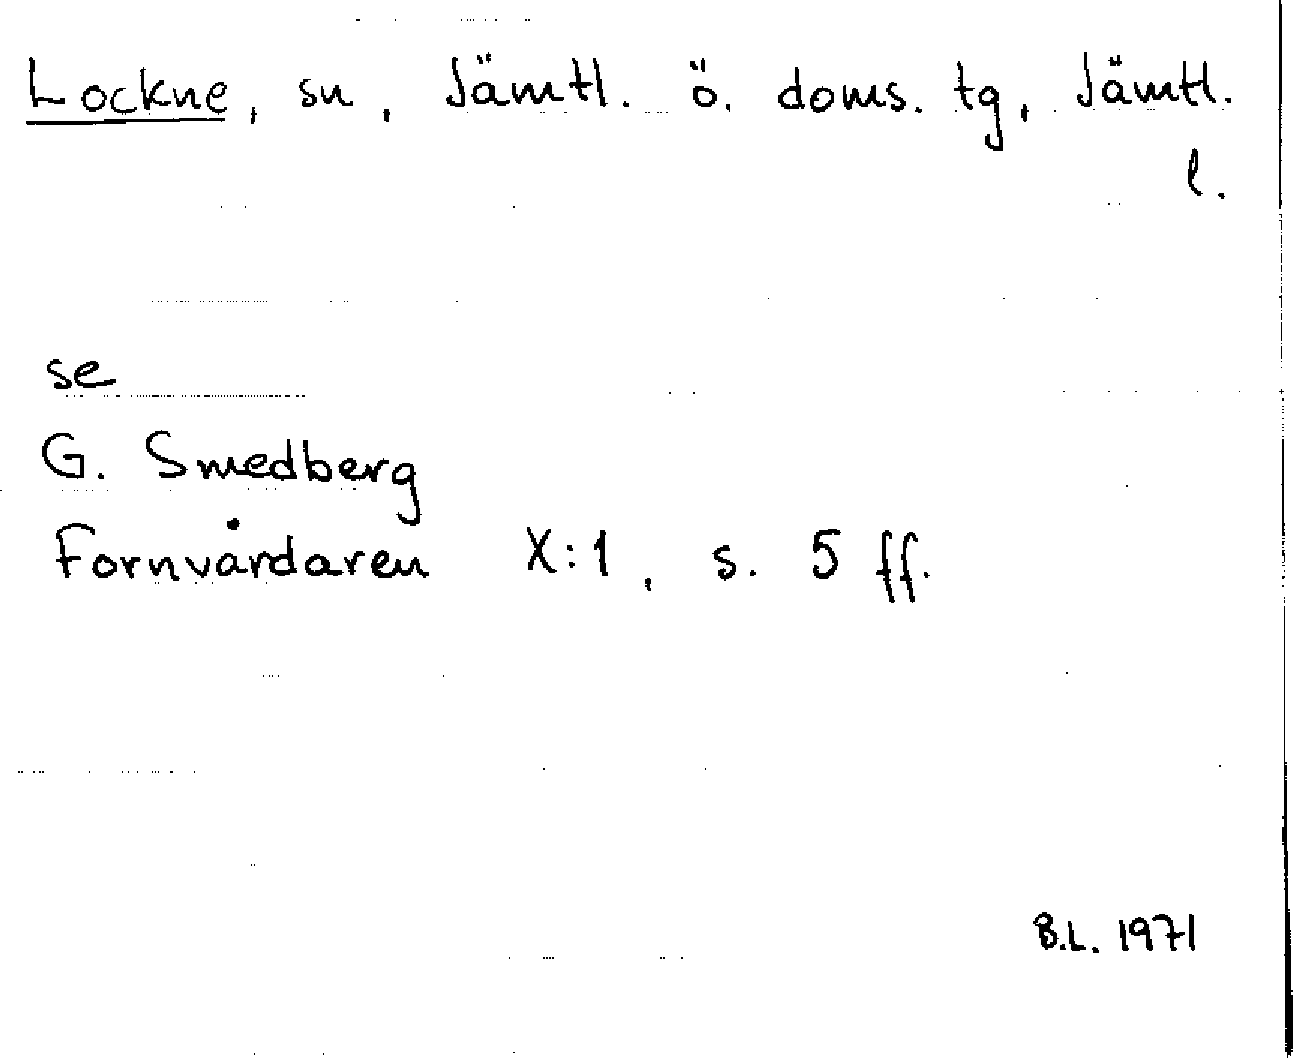 Lockne, sn, Jämtl. ö. doms. tg, Jämtl.
l.
se
G. Smedberg
Fornvårdaren X:1, s. 5 ff.
B.L. 1971